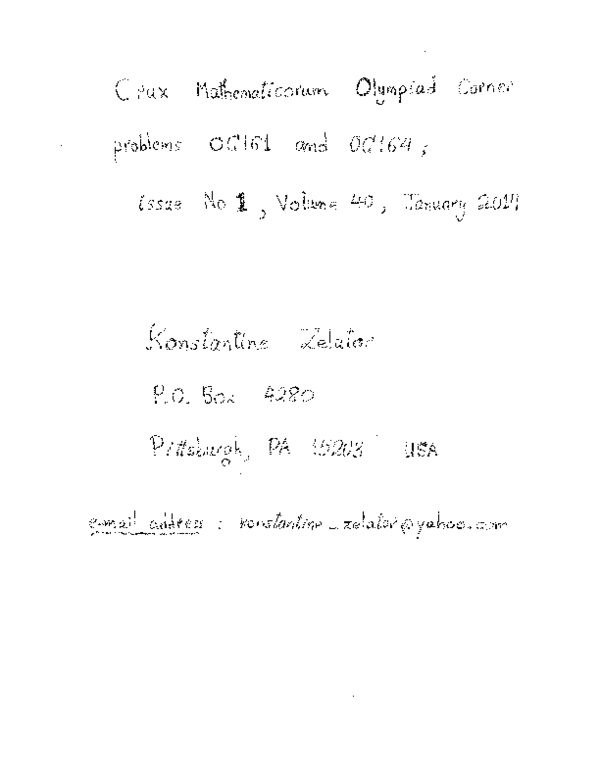 Crux Mathematicorum Olympiad Corner
problems OC161 and OC164;
issue No 1, Volume 40, January 2014
Konstantine Zelator
P.O. Box 4280
Pittsburgh, PA 15203 USA
e-mail address : konstantine_zelator@yahoo.com